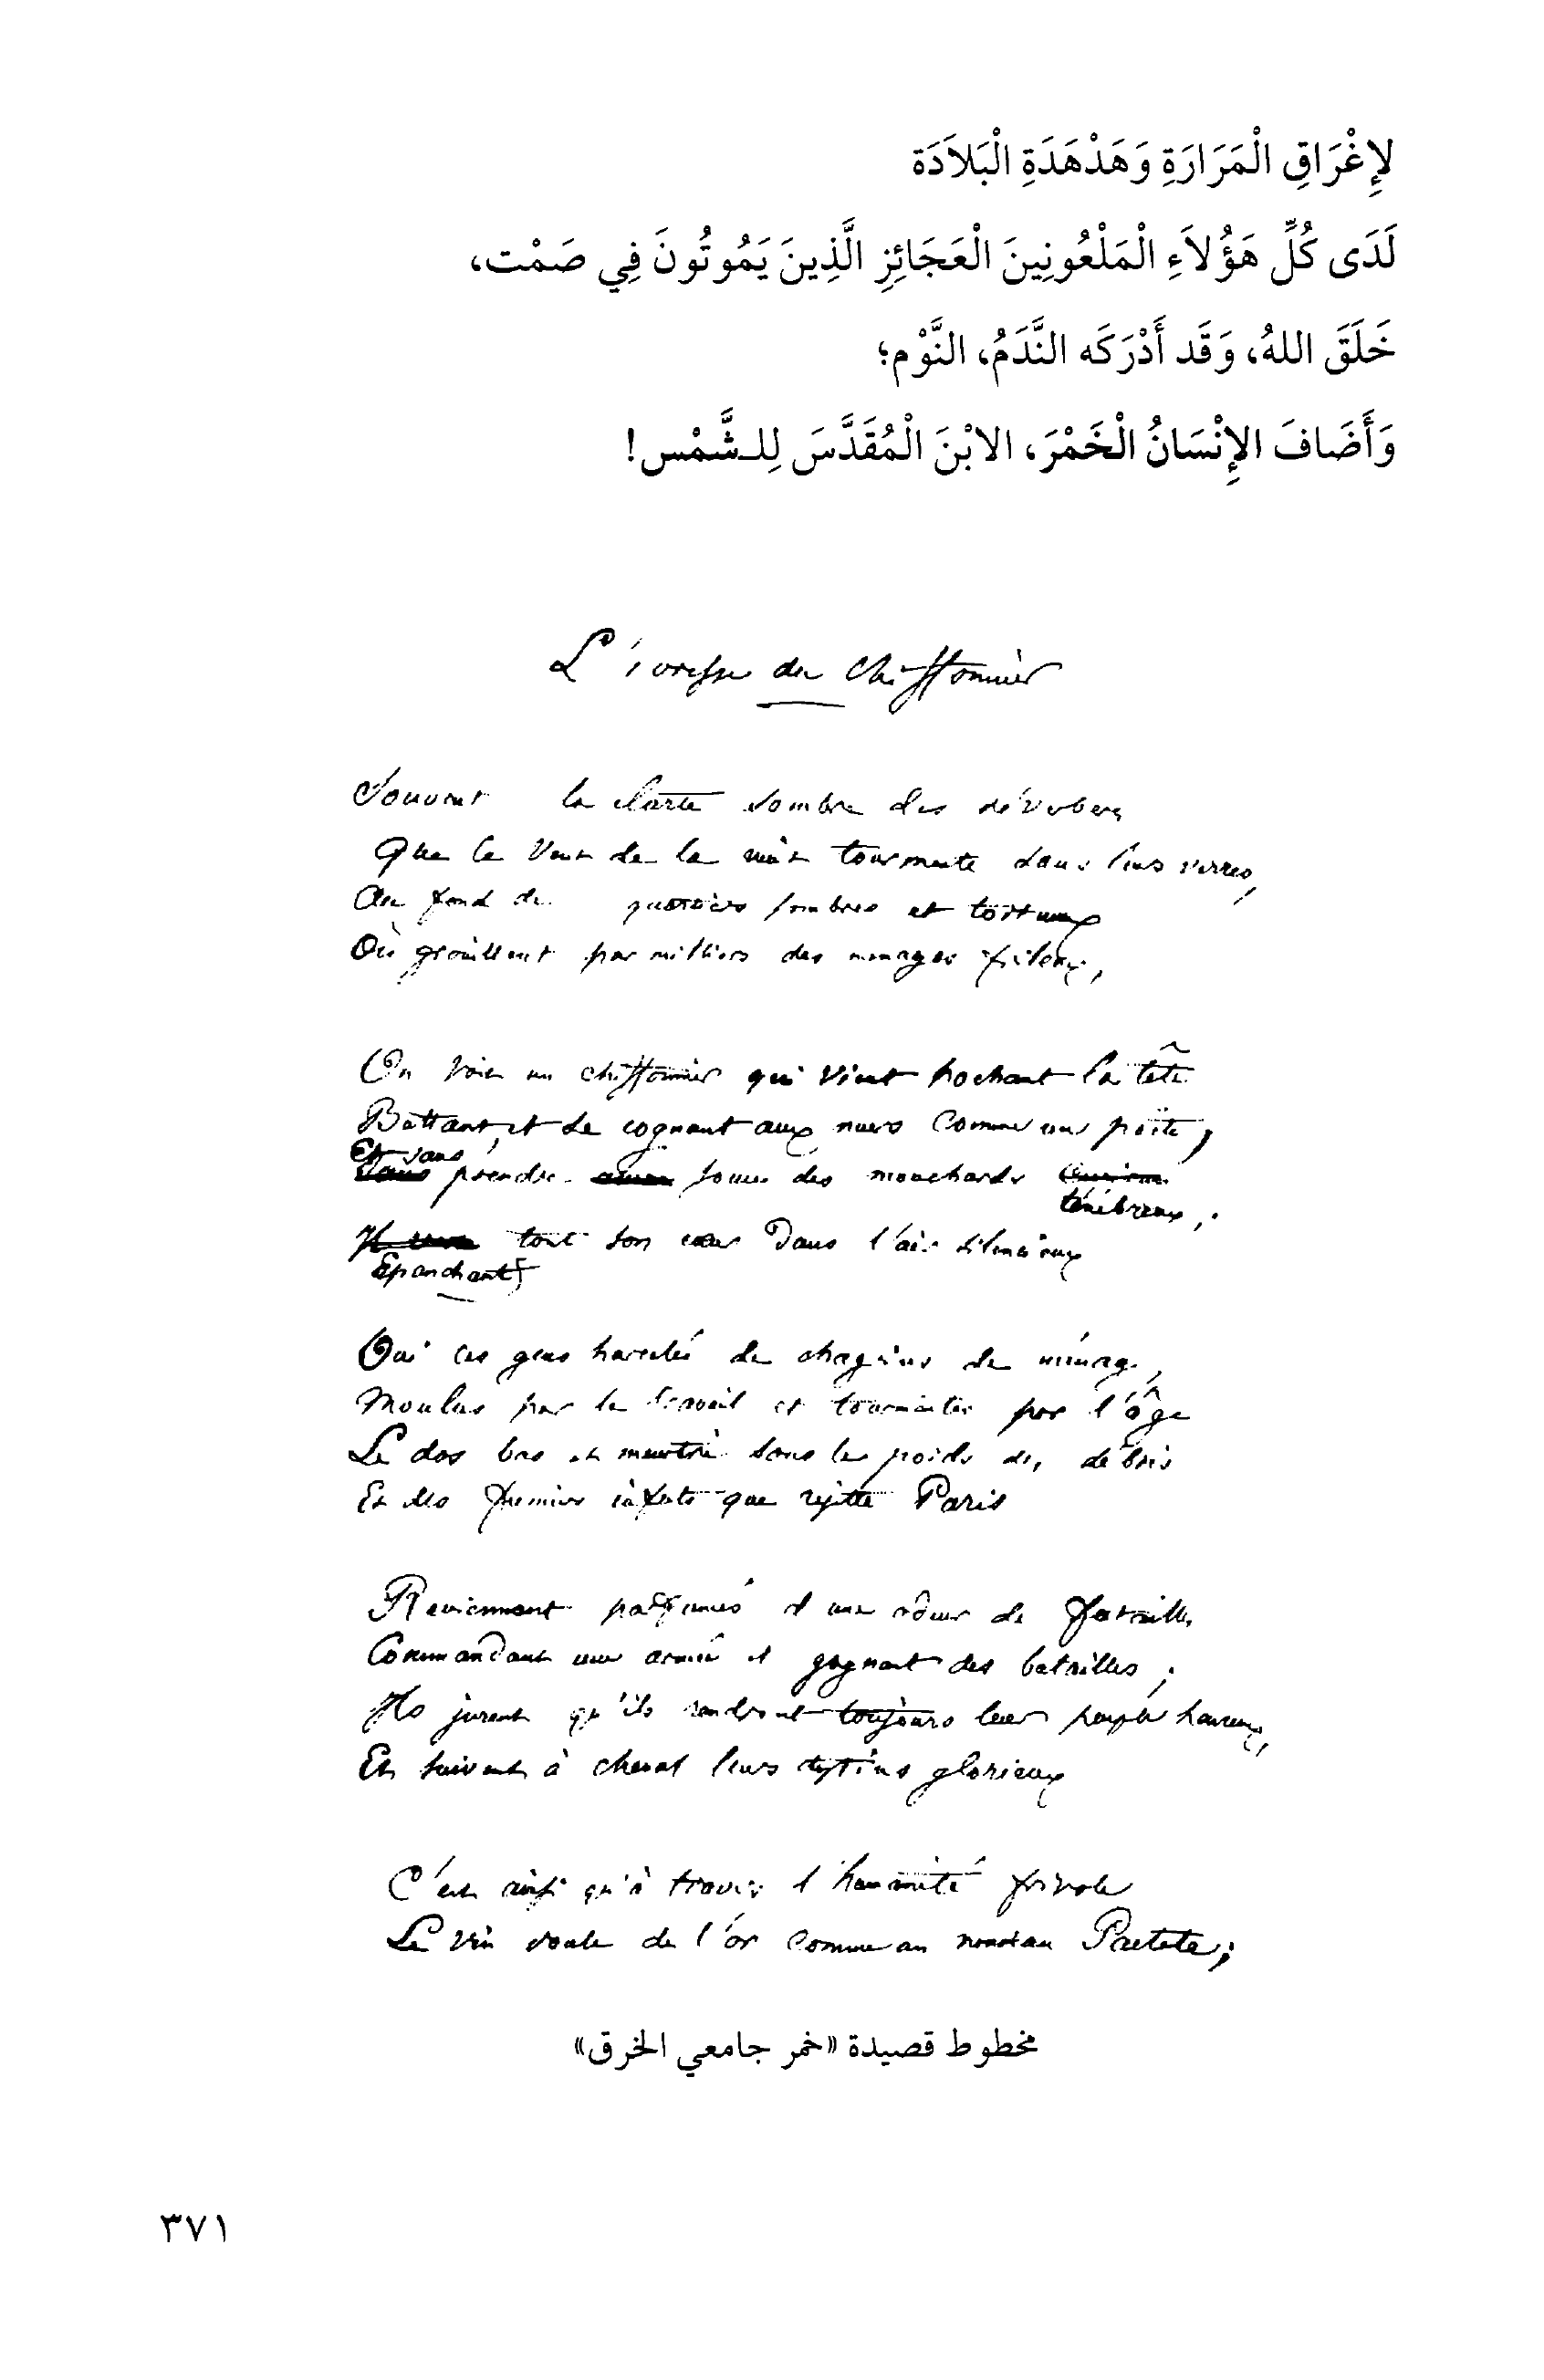 لإِغْرَاقِ الْمَرَارَةِ وَهَدْهَدَةِ الْبَلاَدَة
لَدَى كُلِّ هَؤُلاَءِ الْمَلْعُونِينَ الْعَجَائِزِ الَّذِينَ يَمُوتُونَ فِي صَمْت،
خَلَقَ اللهُ، وَقَد أَدْرَكَه النَّدَمُ، النَّوْم؛
وَأَضَافَ الإِنْسَانُ الْخَمْرَ، الابْنَ الْمُقَدَّسَ لِلـشَّمْس!
L'ivresse du Chiffonnier
Souvent la clarté sombre des réverbères
Que le vent de la nuit tourmente dans leurs verres,
Au fond de quartiers sombres et tortueux
Où grouillent par milliers des ménages frileux,
On voit un chiffonnier qui vient hochant la tête
Buttant, et se cognant aux murs comme un poète,
Et sans prendre souci des mouchards
ténébreux,
tout son cœur dans l'air silencieux
Épanchant
Oui ces gens harcelés de chagrins de ménage,
Moulus par le travail et tourmentés par l'âge
Le dos bas et meurtri sous le poids des débris
Et des fumiers infects que rejette Paris
Reviennent parfumés d'une odeur de futailles
Commandant une armée et gagnant des batailles,
Ils jurent qu'ils rendront toujours leur peuple heureux,
Et suivent à cheval leurs destins glorieux
C'est ainsi qu'à travers l'humanité frivole
Le vin roule de l'or comme un nouveau Pactole;
مخطوط قصيدة «خمر جامعي الخرق»
٣٧١